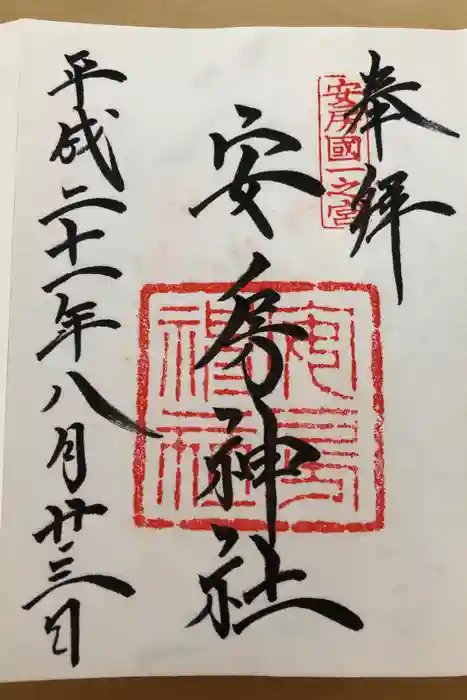 奉拝
安房國一之宮
安房神社
安房神社
平成二十一年八月廿三日